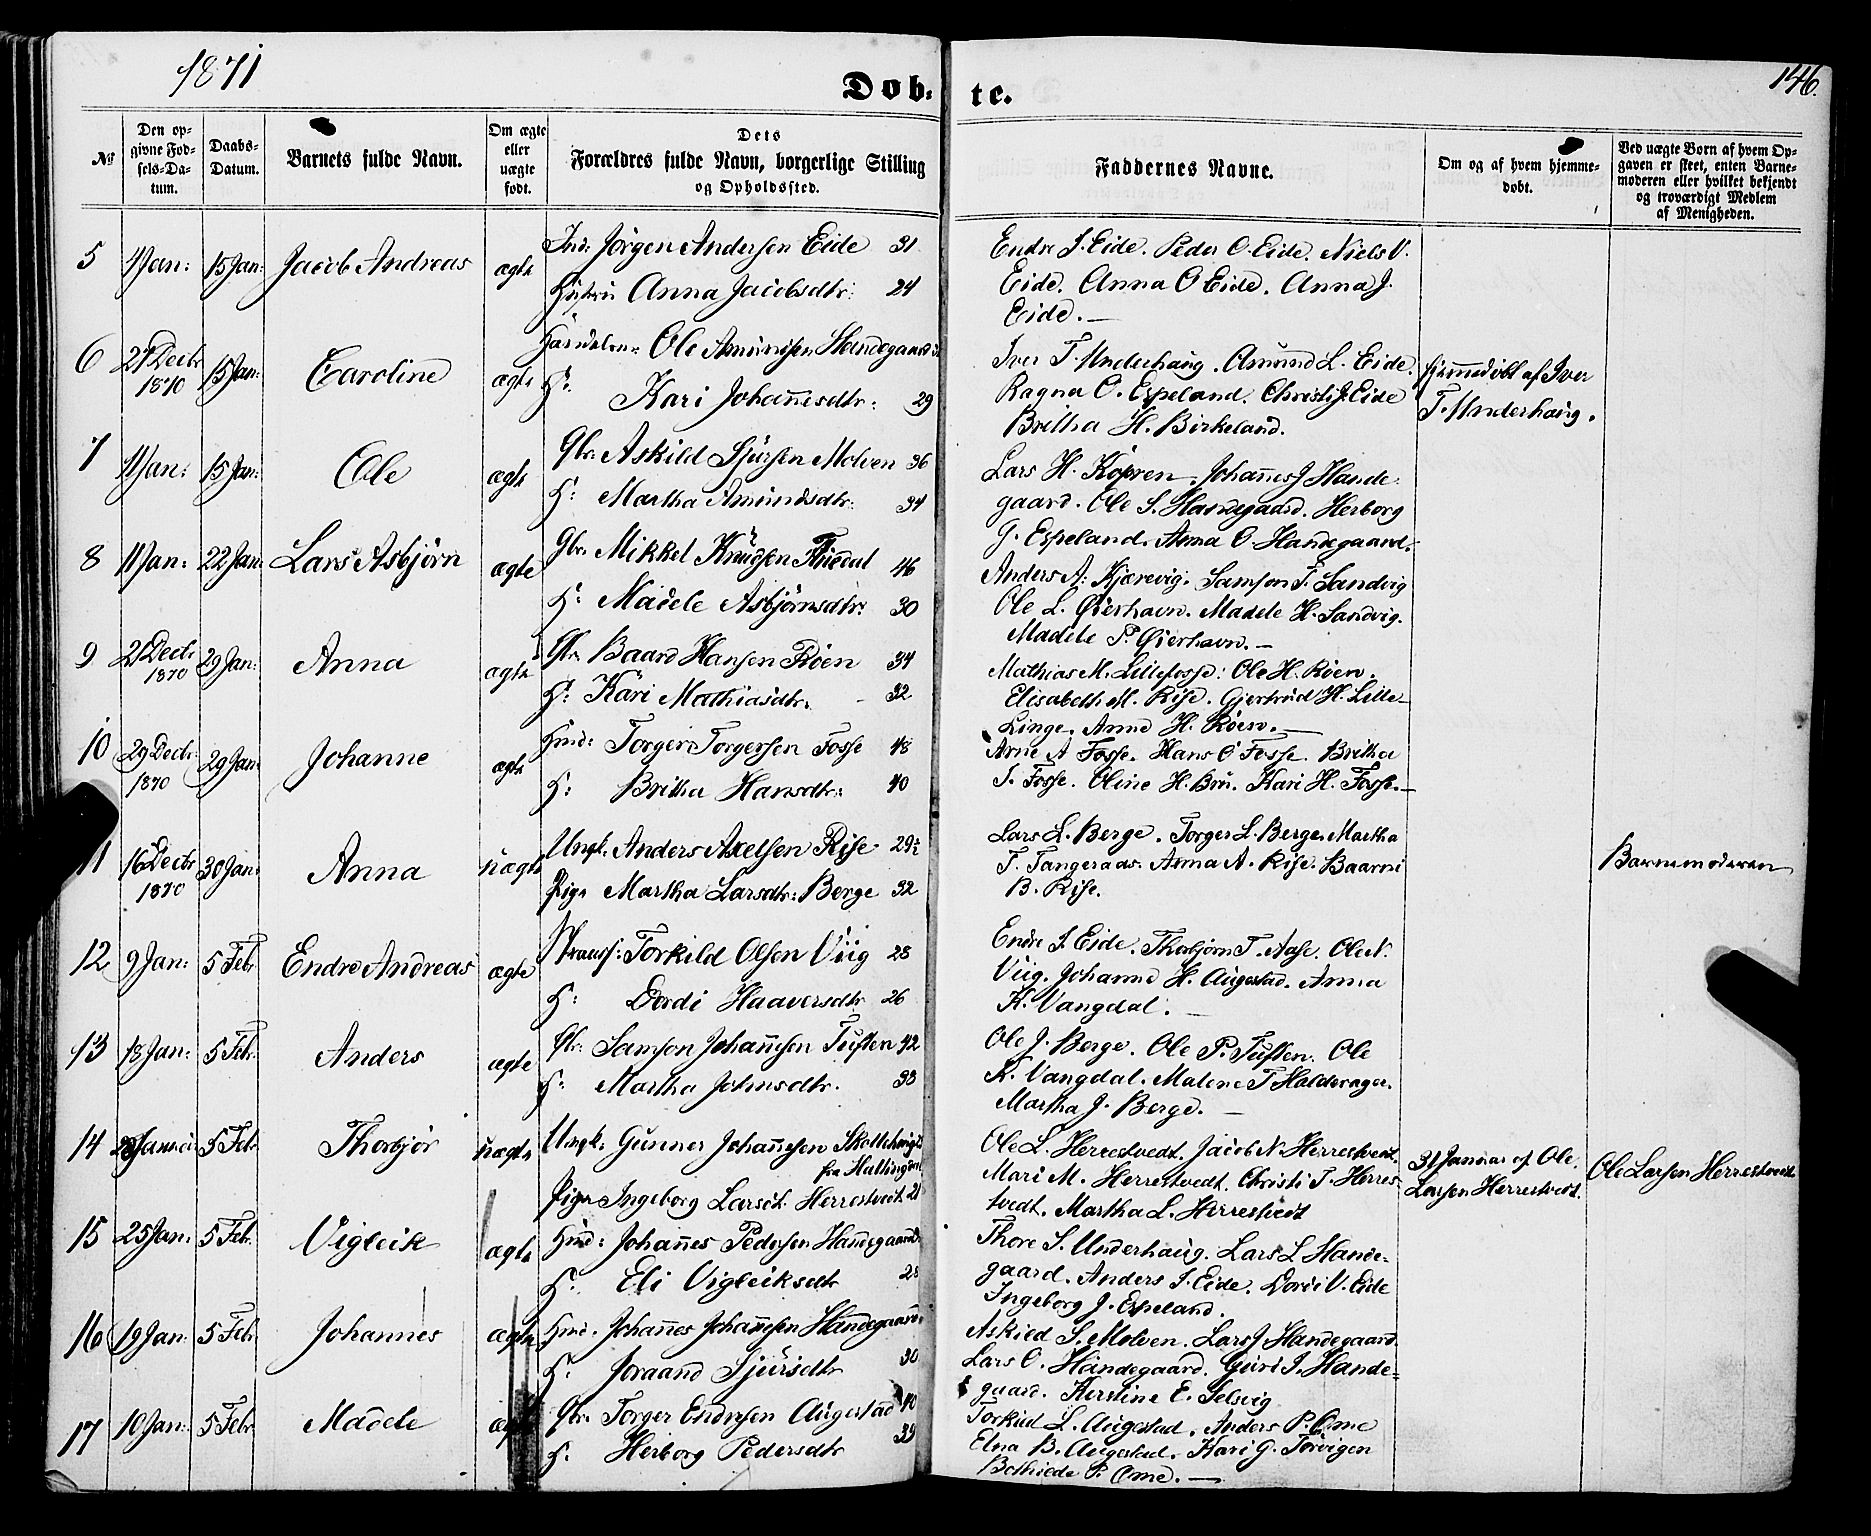 1871
146.
Døb- te.
№
Den op-
givne Fød-
sels-Da-
tum.
Daabs-
Datum.
Barnets fulde Navn.
Om ægte
eller
uægte
født.
Dets
Forældres fulde Navn, borgerlige Stilling
og Opholdssted.
Faddernes Navne.
Om og af hvem hjemme-
døbt.
Ved uægte Børn af hvem Op-
gaven er skeet, enten Barne-
moderen eller hvilket bekjendt
og troværdigt Medlem
af Menigheden.
5 1 Jan: 15 Jan: Jacob Andreas ægte
Jørgen Andersen Eide 31
Anna Jacobsdtr: 24
Endre J. Eide. Peder O. Eide. Niels V.
Eide. Anna O Eide. Anna J.
Eide. —
6 21 Decbr 1870 15 Jan: Caroline ægte
Ole Amundsen Handegaard
H: Kari Johannesdtr: 29
Iver T. Underhaug. Amund L. Eide.
Ragna O. Espeland. Christi J. Eide
Britha H. Birkeland.
hjemmedøbt af Iver
T. Underhaug.
7 11 Jan: 15 Jan: Ole ægte
Gbr: Askild Sjursen Molven 36
H: Martha Amundsdtr: 34
Lars H. Kopren. Johannes J Hande-
gaard. Ole S. Handegaard. Herborg
G. Espeland. Anna O. Handegaard.
8 11 Jan: 22 Jan: Lars Asbjørn ægte
Gbr: Mikkel Knudsen 46
H: Madele Asbjørnsdtr: 30
Anders A: Kjærevig. Samson T. Sandvig
Ole L. Øierhavn. Madele H. Sandvig.
Madele P. Øierhavn. —
9 21 Decbr 1870 29 Jan: Anna ægte
Gbr. Baard Hansen Røen 34
H: Kari Mathiasdtr: 32
Mathias M. Lillefosse: Ole H. Røen.
Elisabeth M. Rise. Gjertrud H. Lille-
Linge. Anne H. Røen. —
10 29 Decbr: 1870 29 Jan: Johanne ægte
Hmd: Torger Torgersen Fosse 48
H: Britha Hansdtr: 40
Arne A Fosse. Hans O Fosse. Britha
S. Fosse. Oline H. Bru. Kari H. Fosse. —
11 16 Decbr 1870 30 Jan: Anna uægte
Ungk. Anders Axelsen Rise 29
Pige Martha Larsdtr: Berge 32
Lars L. Berge. Torger L. Berge. Martha
T. Tangeraas. Anna A. Rise. Baarni
B. Rise.
Barnemoderen
12 9 Jan: 5 Febr Endre Andreas ægte
Torkild Olsen Viig 28
H: Dordi Haaversdtr 26
Endre J. Eide. Thorbjørn T. Aase. Ole N.
Viig. Johanne H. Augestad. Anna
K. Vangdal. —
13 18 Jan: 5 Febr. Anders ægte
Gbr. Samson Johannesen Tuften 42
H: Martha Johnsdtr. 33
Ole J. Berge. Ole P. Tuften. Ole
K. Vangdal. Malene T Haldorager.
Martha J. Berge. —
14 28 Januar 5 Febr. Thorbjør uægte
Ungk: Gunner Johannesen
fra Hallingdal
Pige Ingeborg Larsdt. Herrestvedt 21
Ole L. Herrestvedt. Jacob N. Herrestvedt.
Mari M. Herrestvedt. Christi T. Herres-
tvedt. Martha L. Herrestvedt
31 Januar af Ole
Larsen Herrestvedt.
Ole Larsen Herrestvedt
15 25 Jan: 5 Febr. Vigleik ægte
Hmd: Johannes Pedersen Handegaard
H: Eli Vigleiksdtr 28
Thore S. Underhaug. Lars L Hande-
gaard. Anders J. Eide. Dordi V. Eide
Ingeborg J. Espeland.
16 19 Jan: 5 Febr Johannes ægte
Hmd. Johannes Johannesen Handegaard
H: Joraand Sjursdtr 30
Askild S. Molven. Lars J Handegaard.
Lars O. Handegaard. Guri J. Hande-
gaard. Kirstine E. Selsvig
17 10 Jan: 5 Febr Madele ægte
Gbr. Torger Endresen Augestad 40
H. Herborg Pedersdtr 39
Torkild L. Augestad. Anders P. Ome
Elna B. Augestad. Kari G. Torvigen
Bothilde P. Ome. —